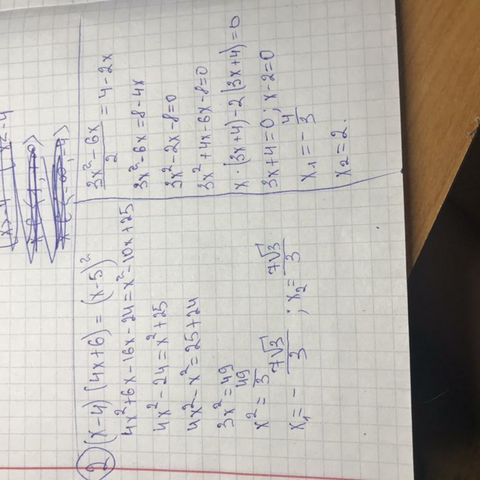 2) (x-4)(4x+6)=(x-5)²
4x²+6x-16x-24=x²-10x+25
4x²-24=x²+25
4x²-x²=25+24
3x²=49
x²=49/3
x₁=-7√3/3; x₂=7√3/3
3x²-6x/2=4-2x
3x²-6x=8-4x
3x²-2x-8=0
3x²+4x-6x-8=0
x·(3x+4)-2(3x+4)=0
3x+4=0; x-2=0
x₁=-4/3
x₂=2.